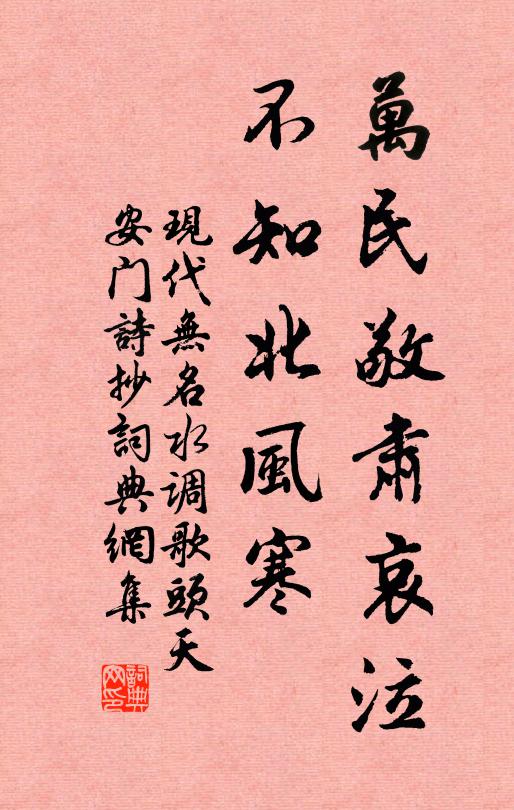 萬民敬肅哀泣
不知北風寒
現代無名水调歌頭天
安门詩抄詞典網集
詞典网印